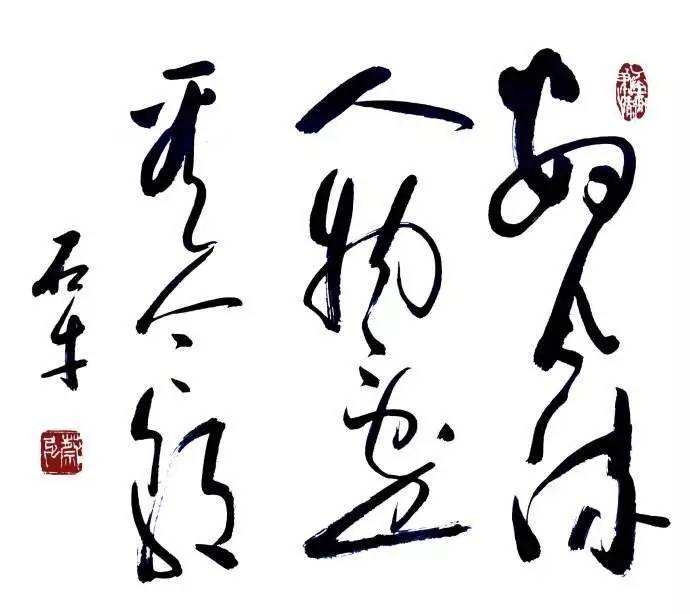 数风流
人物还
看今朝
石牛